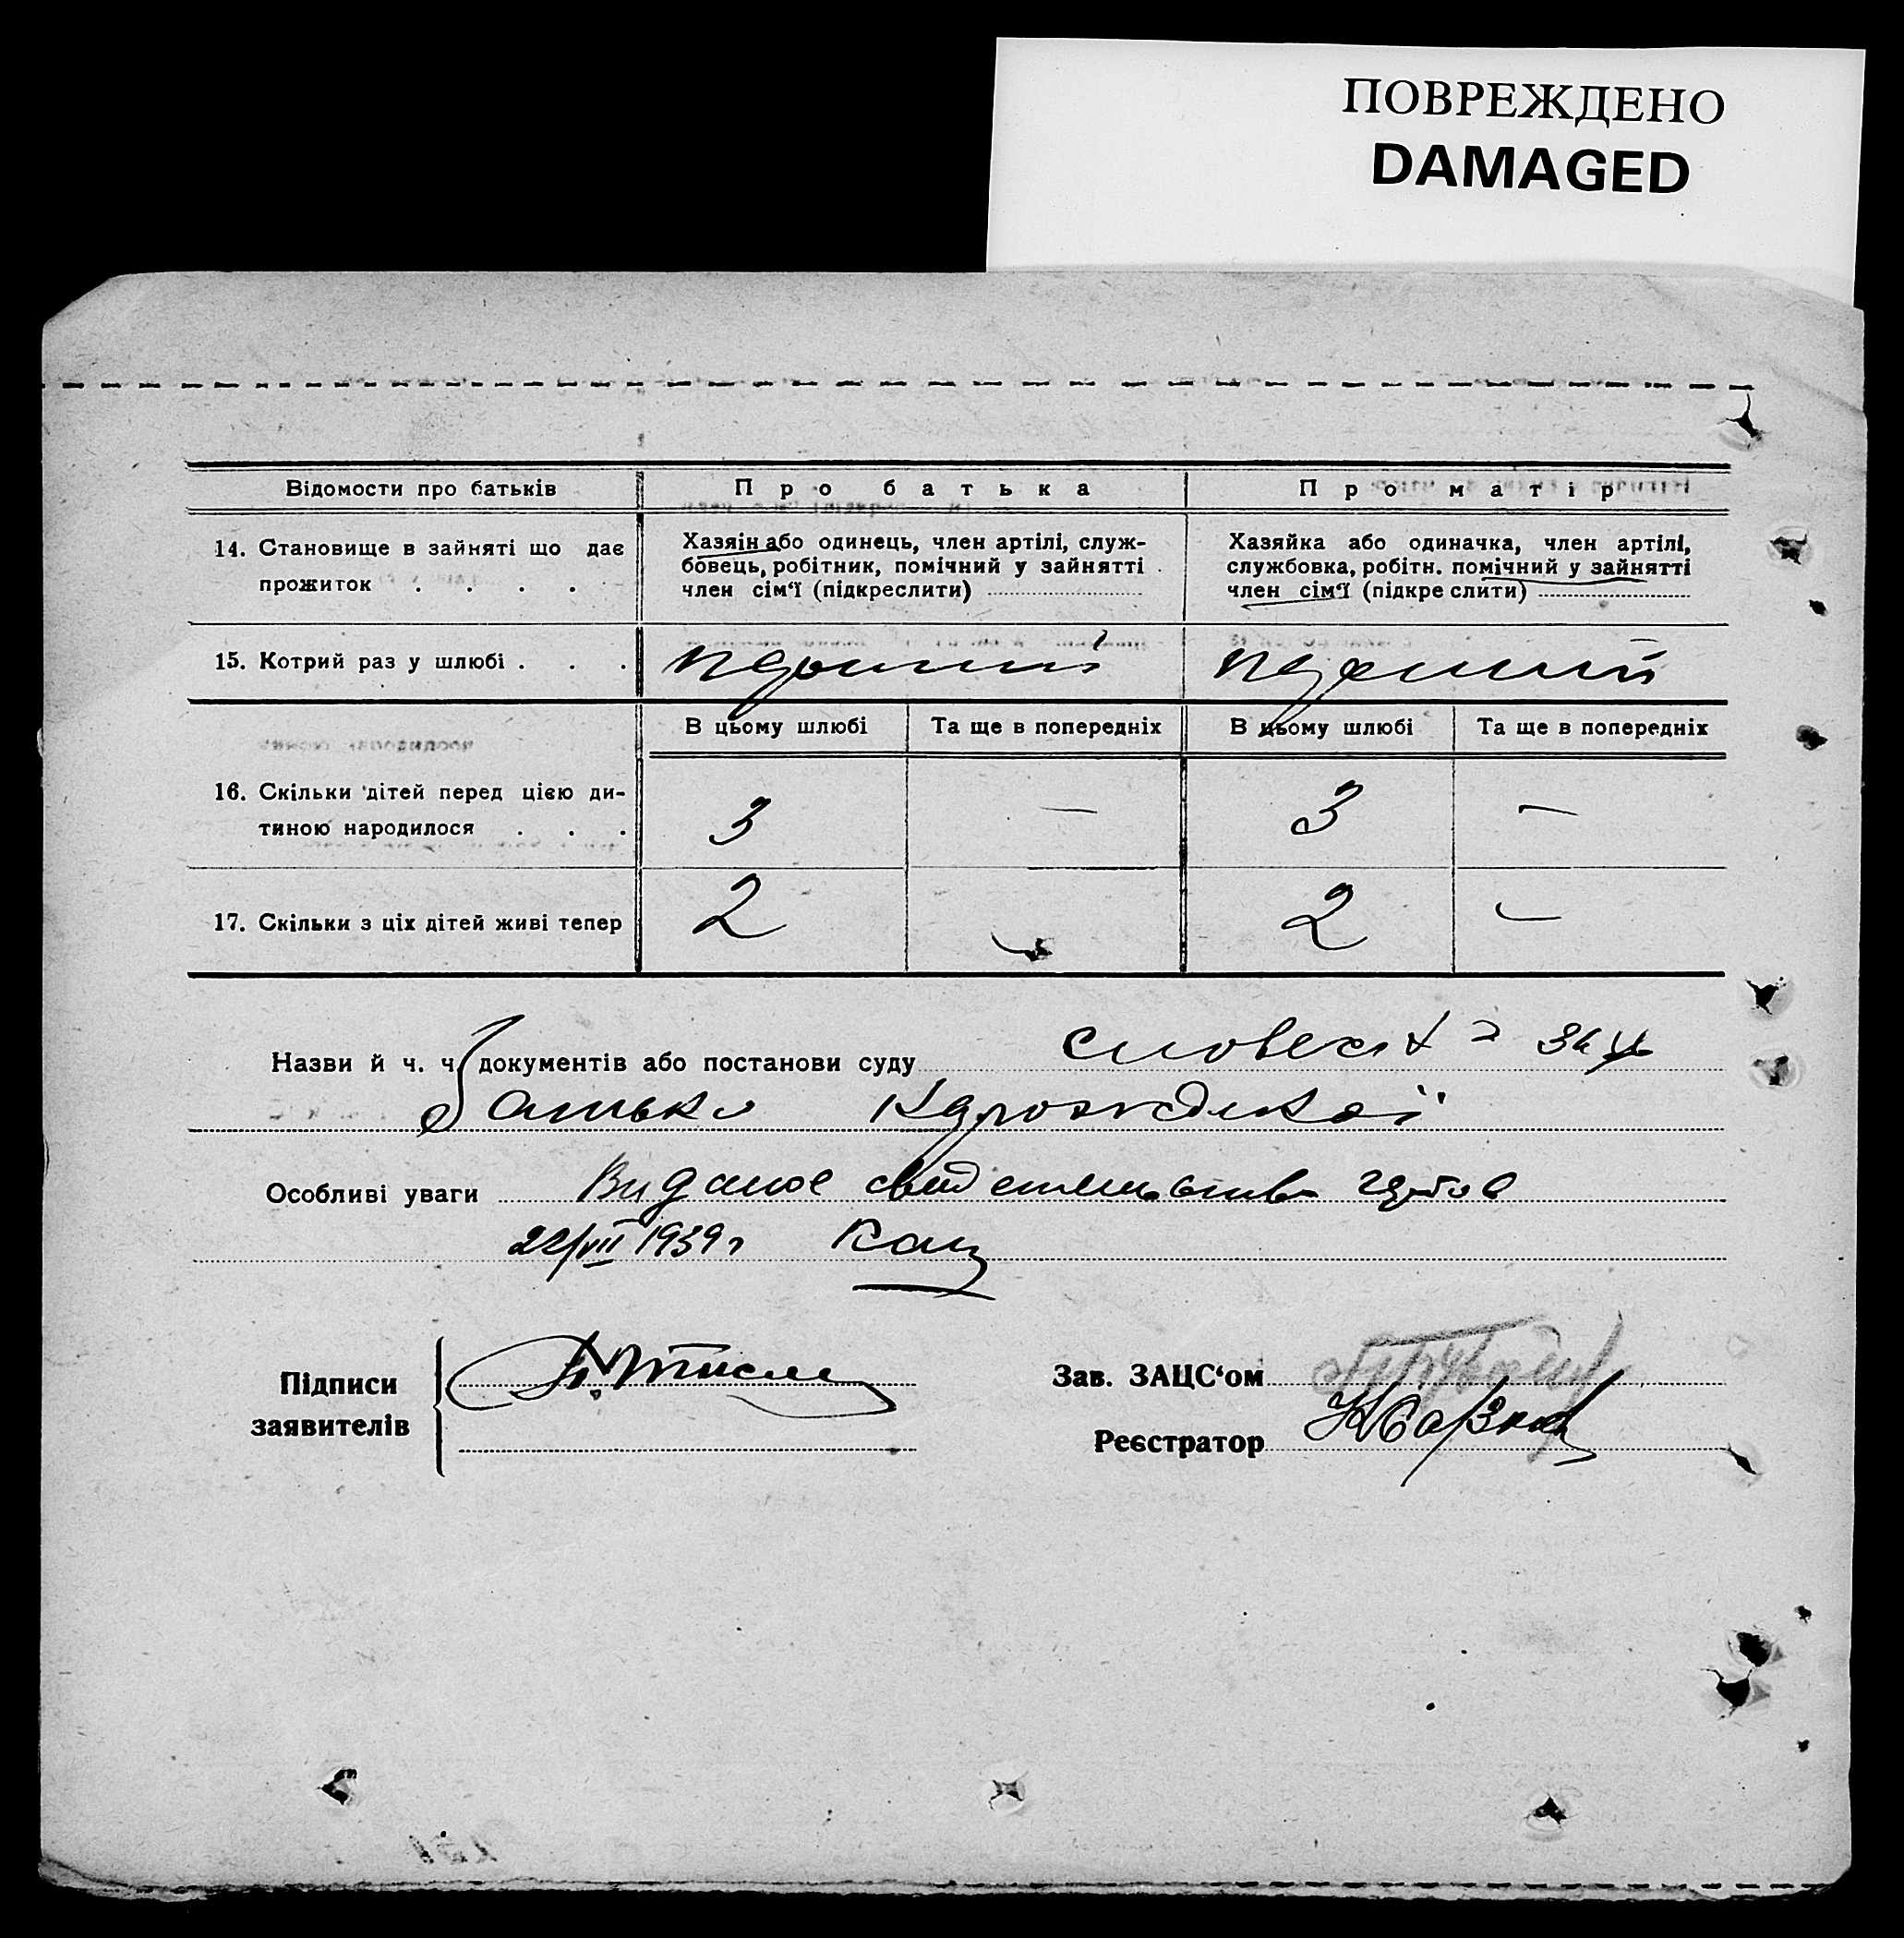 ПОВРЕЖДЕНО
DAMAGED
Відомости про батьків
Про батька
Про матір
14. Становище в зайняті що дає
прожиток . . . .
Хазяін або одинець, член артілі, служ-
бовець, робітник, помічний у зайнятті
член сім‘ї (підкреслити)
Хазяйка або одиначка, член артілі,
службовка, робітн. помічний у зайнятті
член сім‘ї (підкре слити)
15. Котрий раз у шлюбі . . .
перший
перший
В цьому шлюбі
Та ще в попередніх
В цьому шлюбі
Та ще в попередніх
16. Скільки дітей перед цією ди-
тиною народилося . . .
3
—
3
—
17. Скільки з ціх дітей живі тепер
2
—
2
—
Назви й ч. ч. документів або постанови суду
батька
Особливі уваги Видано
22/VII 1939 г Кац
Підписи
заявителів
Зав. ЗАЦС‘ом
Реєстратор